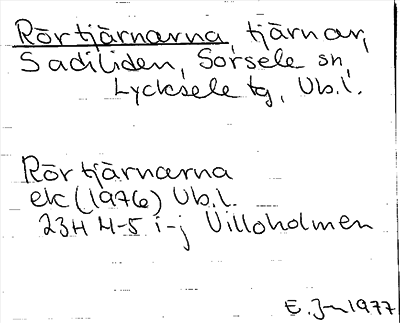 Rörtjärnarna, tjärnar,
Sadiliden, Sorsele sn,
Lycksele tg, Vb.l.
Rörtjärnarna
ek (1976) Vb.l.
23H 4-5 i-j Villoholmen
E. J-n 1977